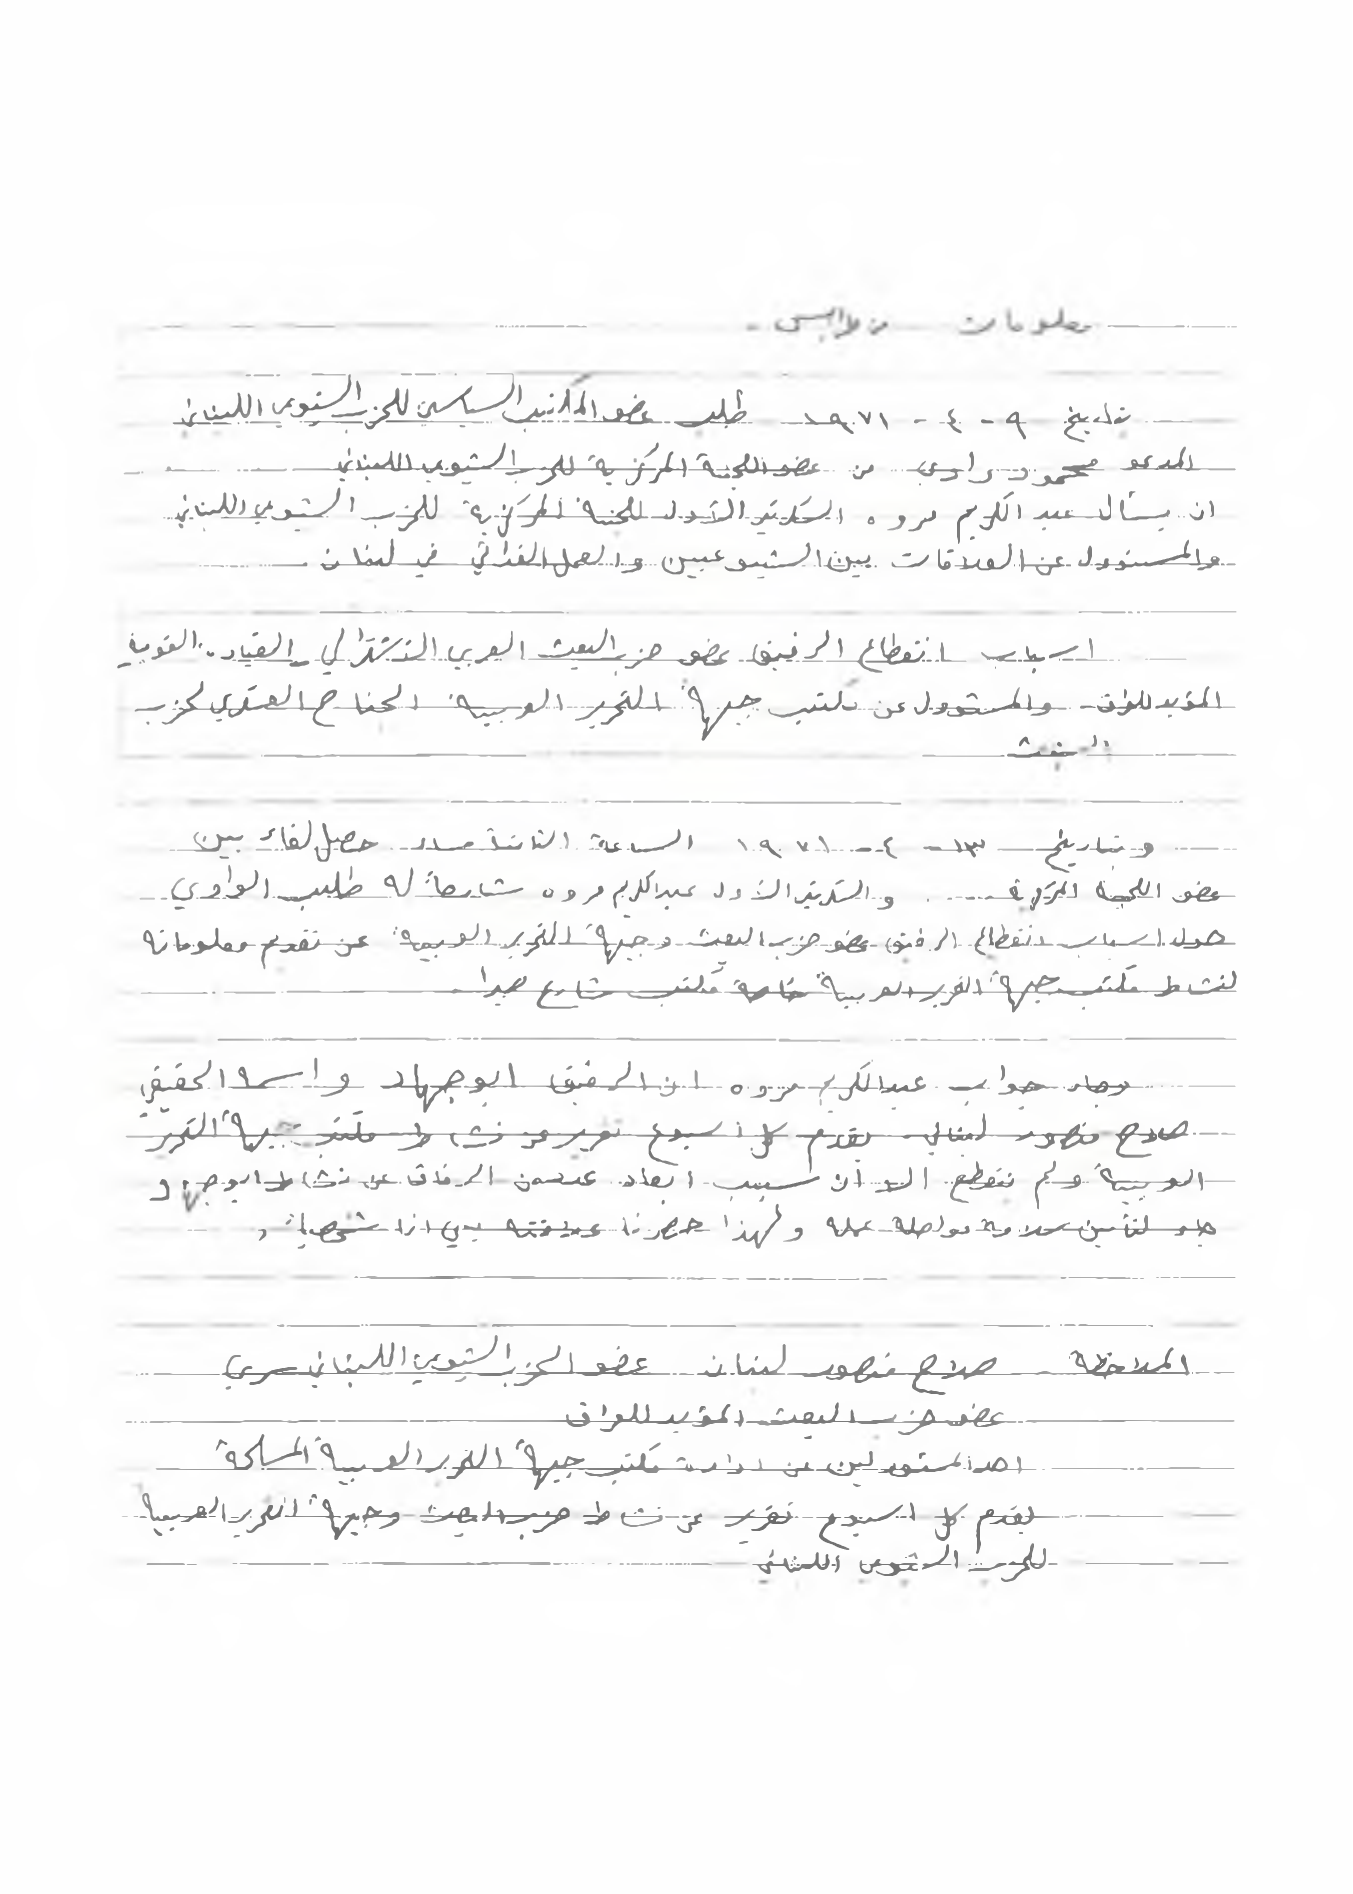 معلومات من طرابلس -
تاريخ ٩ - ٤ - ١٩٧١ طلب عضو المكتب السياسي للحزب الشيوعي اللبناني
المدعو محمود واوي من عضو اللجنة المركزية للحزب الشيوعي اللبناني
ان يسأل عبد الكريم مروه السكرتير الأول للجنة المركزية للحزب الشيوعي اللبناني
والمسئوول عن العلاقات بين الشيوعيين والعمل الفدائي في لبنان .
اسباب انقطاع الرفيق عضو حزب البعث العربي الاشتراكي - القيادة القومية -
المؤيد للعراق - والمسئوول عن مكتب جبهة التحرير العربية الجناح العسكري لحزب
البعث
وبتاريخ ١٣ - ٤ - ١٩٧١ الساعة الثامنة مساء حصل لقاء بين
عضو اللجنة المركزية ..... والسكرتير الأول عبد الكريم مروه شارحاً له طلب الواوي
حول اسباب انقطاع الرفيق عضو حزب البعث وجبهة التحرير العربية عن تقديم معلوماته
لنشاط مكتب جبهة التحرير العربية خاصة مكتب شارع صيدا .
وجاء جواب عبد الكريم مروه ان الرفيق ابو جهاد واسمه الحقيقي
صلاح منصور لبناني - يقدم كل اسبوع تقرير عن نشاط مكتب جبهة التحرير
العربية ولم ينقطع الا ان سبب ابعاد بعض الرفاق عن نشاط ابو جهاد
جاء لتأمين سلامة مواصلة عمله ولهذا حصرنا علاقته بي انا شخصياً .
الملاحظة - صلاح منصور لبنان عضو الحزب الشيوعي اللبناني سري
عضو حزب البعث المؤيد للعراق
احد المسئولين عن ادارة مكتب جبهة التحرير العربية المسلحة
يقدم كل اسبوع تقرير عن نشاط حزب البعث وجبهة التحرير العربية
للحزب الشيوعي اللبناني